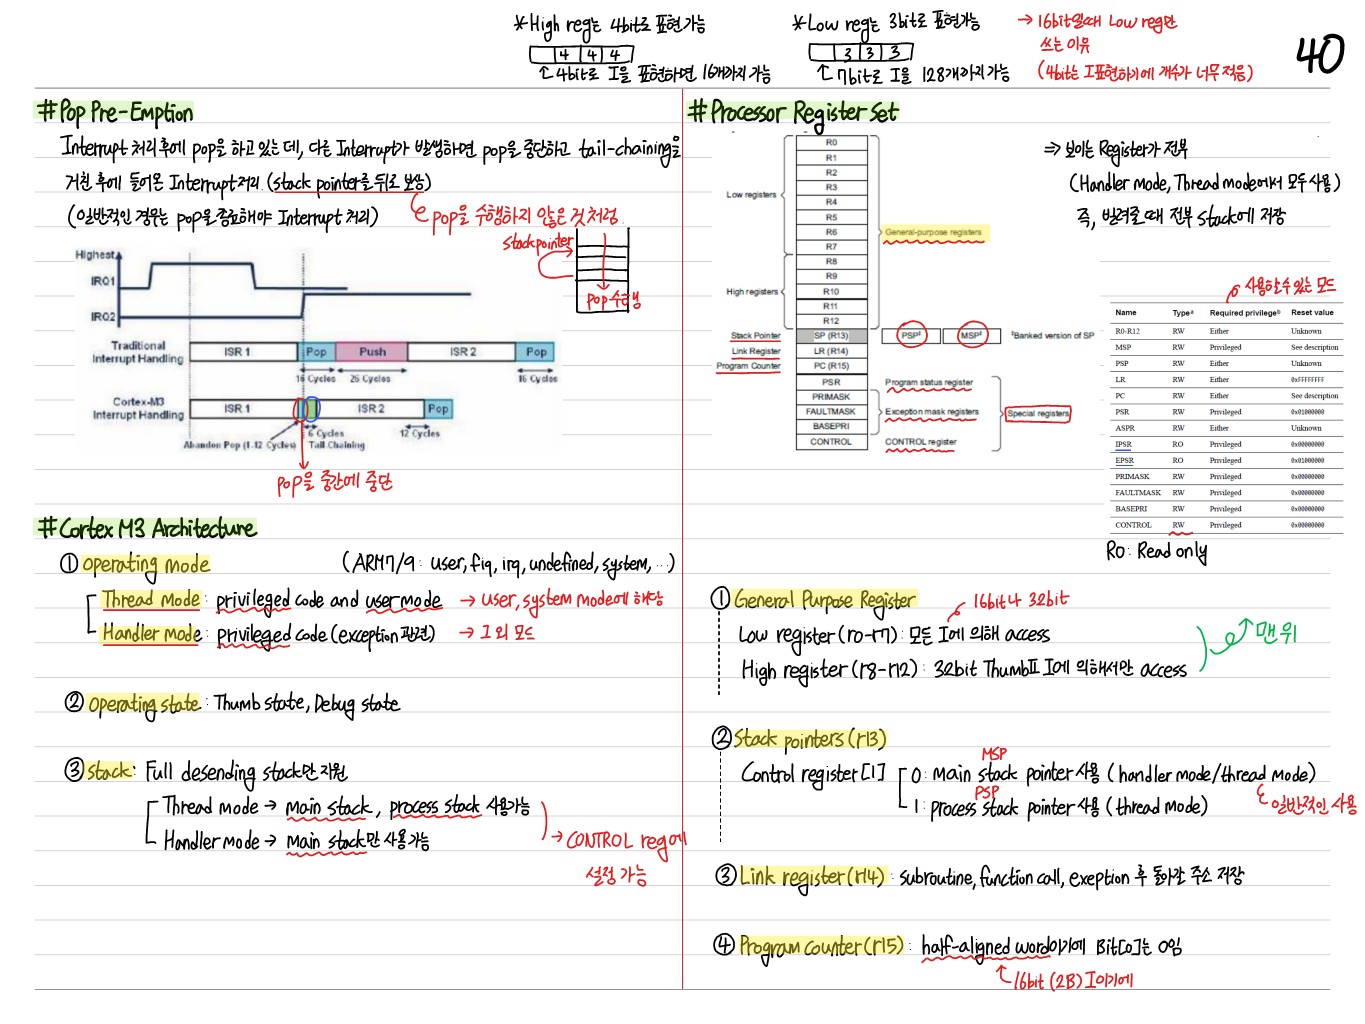 *High reg는 4bit로 표현가능
4 4 4
4bit로 I을 표현하면 16개까지 가능
*Low reg는 3bit로 표현가능
3 3 3
7bit로 I을 128개까지 가능
→ 16bit일때 Low reg만
쓰는 이유
(4bit는 I표현하기에 개수가 너무 적음)
40
#Pop Pre-Emption
Interrupt 처리 후에 pop을 하고 있는데, 다른 Interrupt가 발생하면 pop을 중단하고 tail-chaining을
거친 후에 들어온 Interrupt처리. (stack pointer를 뒤로 보상)
(일반적인 경우는 pop을 종료해야 Interrupt 처리)
pop을 수행하지 않은 것 처럼
stack pointer
pop 수행
Highest
IRQ1
IRQ2
Traditional
Interrupt Handling
ISR 1
Pop
Push
ISR 2
Pop
16 Cycles
26 Cycles
16 Cycles
Cortex-M3
Interrupt Handling
ISR 1
ISR 2
Pop
6 Cycles
12 Cycles
Abandon Pop (1-12 Cycles)
Tail-Chaining
pop을 중간에 중단
#Cortex M3 Architecture
① operating mode
(ARM7/9 : user, fiq, irq, undefined, system, …)
Thread mode : privileged code and user mode → user, system mode에 해당
Handler mode : privileged code (exception 관련) → 그 외 모드
② operating state : Thumb state, Debug state
③ stack : Full desending stack만 지원
Thread mode → main stack, process stack 사용가능
Handler mode → main stack만 사용가능
→ CONTROL reg에
설정 가능
#Processor Register Set
R0
R1
R2
R3
R4
R5
R6
R7
R8
R9
R10
R11
R12
SP (R13)
LR (R14)
PC (R15)
PSR
PRIMASK
FAULTMASK
BASEPRI
CONTROL
Low registers
High registers
General-purpose registers
Stack Pointer
Link Register
Program Counter
PSP‡
MSP‡
‡Banked version of SP
Program status register
Exception mask registers
CONTROL register
Special registers
⇒ 보이는 Register가 전부
(Handler mode, Thread mode에서 모두 사용)
즉, 빌려쓸 때 전부 stack에 저장
사용할 수 있는 모드
Name Typeᵃ Required privilegeᵇ Reset value
R0-R12 RW Either Unknown
MSP RW Privileged See description
PSP RW Either Unknown
LR RW Either 0xFFFFFFFF
PC RW Either See description
PSR RW Privileged 0x01000000
ASPR RW Either Unknown
IPSR RO Privileged 0x00000000
EPSR RO Privileged 0x01000000
PRIMASK RW Privileged 0x00000000
FAULTMASK RW Privileged 0x00000000
BASEPRI RW Privileged 0x00000000
CONTROL RW Privileged 0x00000000
RO : Read only
① General Purpose Register
16bit나 32bit
Low register (r0-r7) : 모든 I에 의해 access
High register (r8-r12) : 32bit ThumbⅡ I에 의해서만 access
맨 위
② Stack pointers (r13)
MSP
Control register [1] 0 : Main stack pointer 사용 (handler mode/thread mode)
PSP
1 : process stack pointer 사용 (thread mode)
일반적인 사용
③ Link register (r14) : subroutine, function call, exeption 후 돌아갈 주소 저장
④ Program counter (r15) : half-aligned word이기에 Bit[0]는 0임
16bit (2B) I이기에